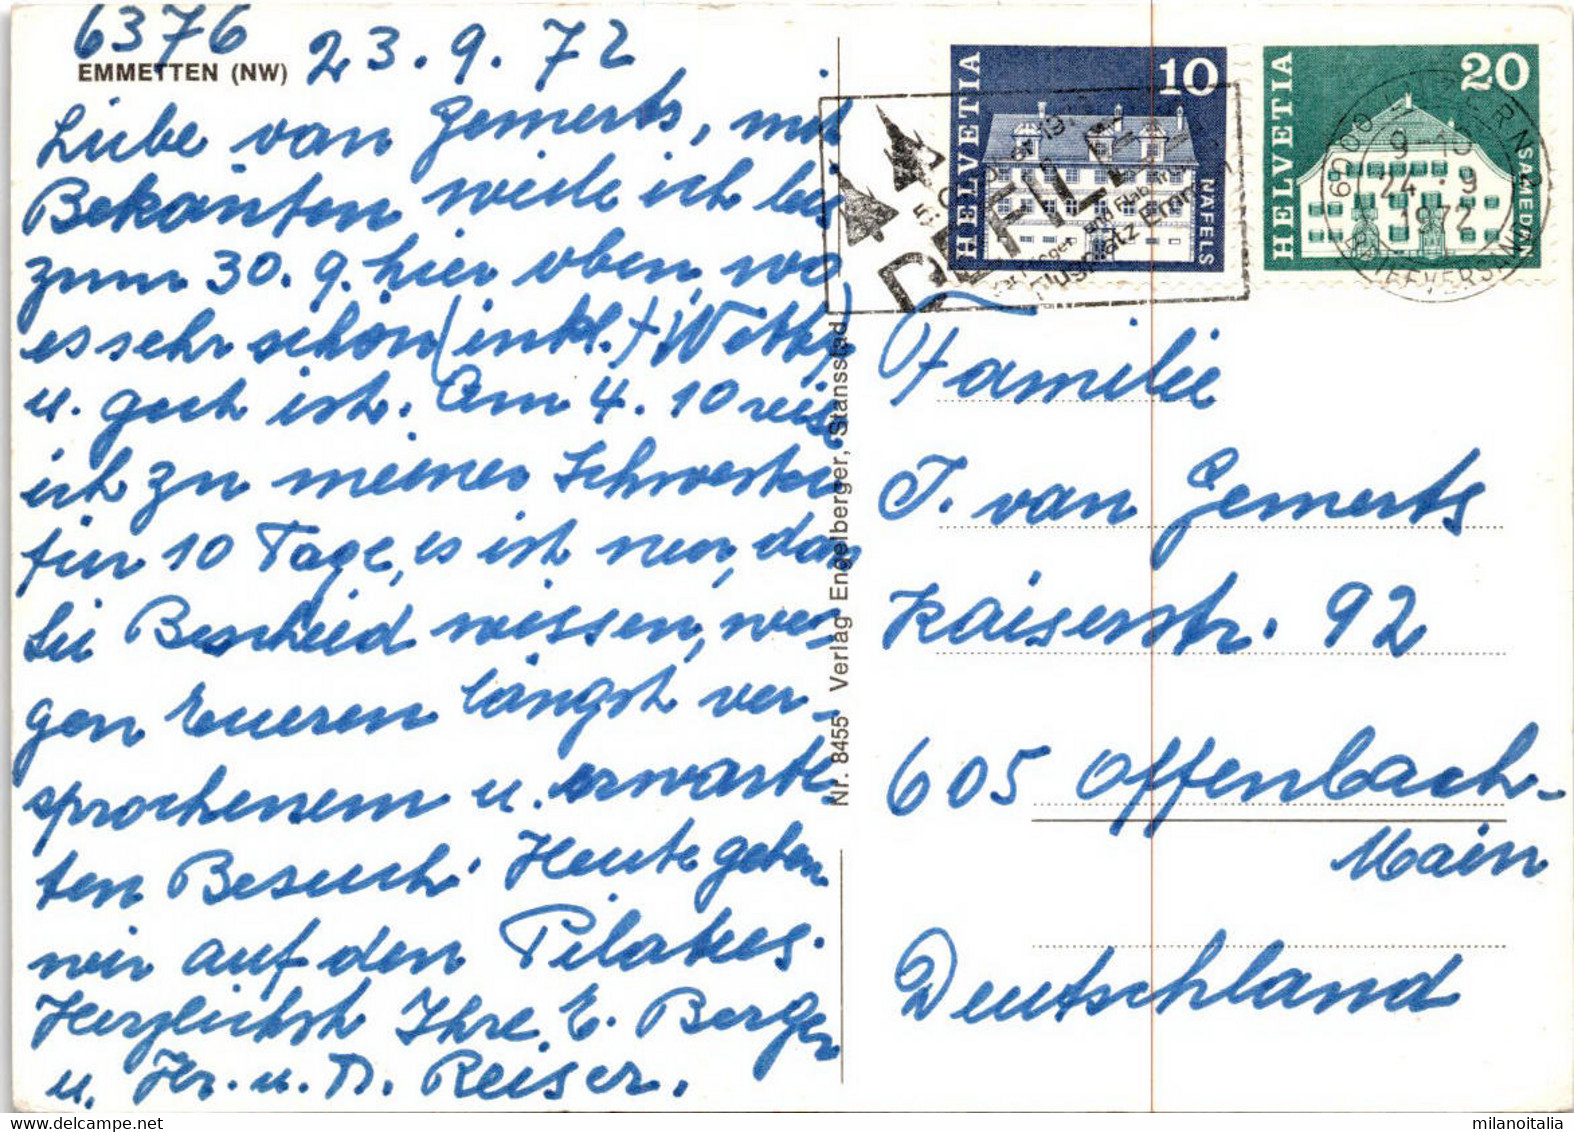 6376
EMMETTEN (NW)
23.9.72
Liebe van Gemerts, mit
Bekannten weile ich bis
zum 30.9. hier oben, wo
es sehr schön (inkl.
u. ist. Am 4.10 reise
ich zu meiner Schwester
für 10 Tage, es ist nur, daß
Sie Bescheid wissen, we-
gen Eueren längst ver-
sprochenem u. erwarte-
ten Besuch. Heute gehen
wir auf den Pilatus.
Herzlichst Ihre E. Berger
u. Hr. u. Reiser.
Nr. 8455 Verlag Engelberger, Stansstad
HELVETIA
10
NÄFELS
HELVETIA
20
SAMEDAN
DEFILEE
6000 LUZERN
24.9
1972
BRIEFVERSAND
Familie
J. van Gemerts
Kaiserstr. 92
605 Offenbach-
Main
Deutschland
milanoitalia